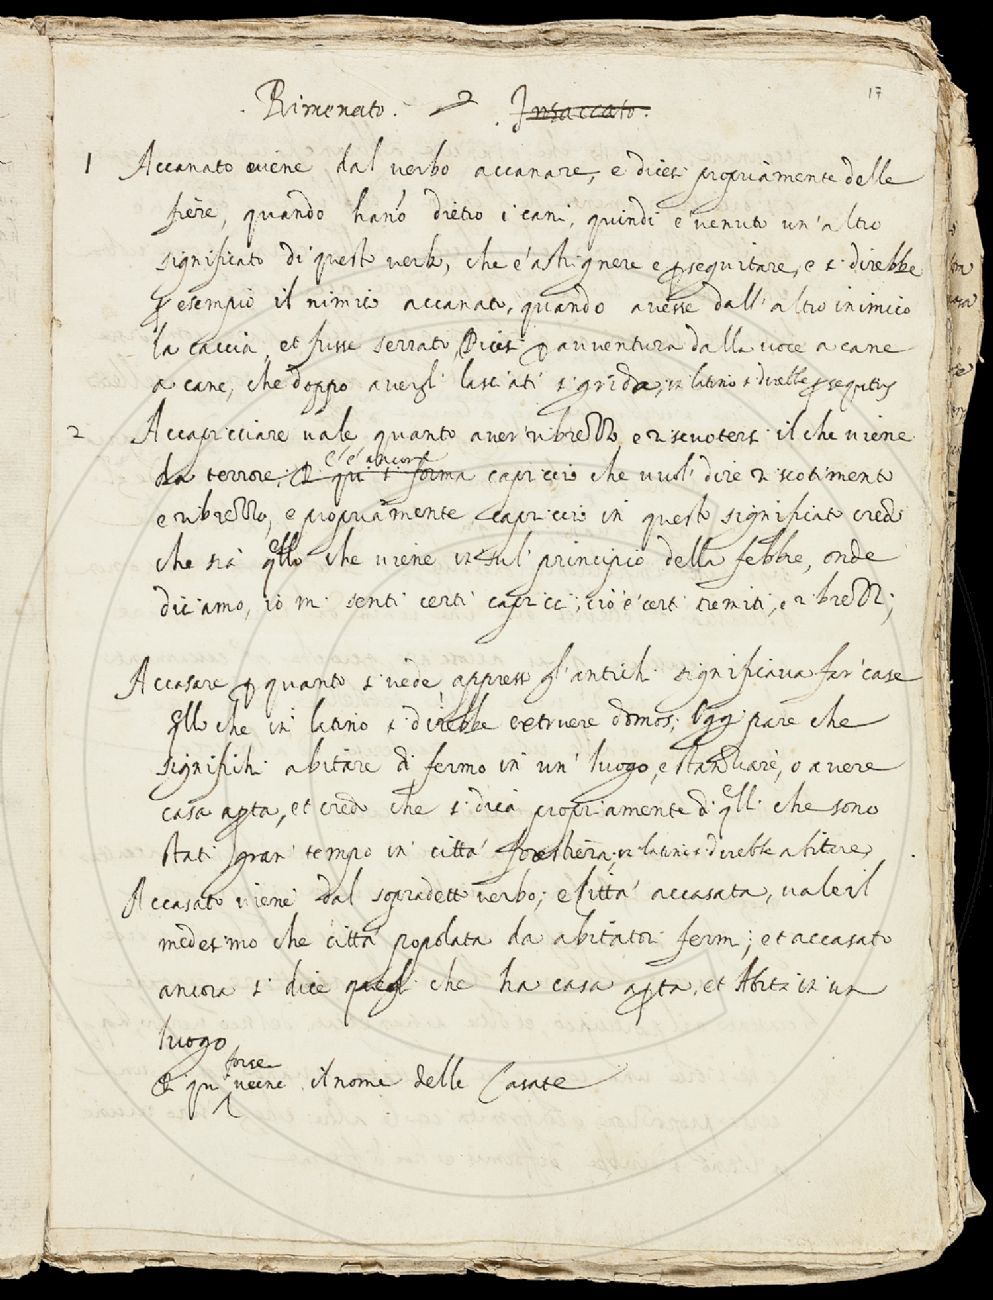 17
Rimenato. 2 Insaccato.
1 Accanato viene dal verbo accanare, e dicesi propriamente delle
fiere, quando hano dietro i cani, quindi e venuto un'altro
significato di questo verbo, che e' astrignere e pseguitare, e si direbbe
p esempio il nimico accanato, quando avesse dall'altro inimico
la caccia et fusse serrato, Dicesi p avventura dalla voce a cane
a cane, che doppo avergli lasciati si grida; in latino si direbbe
2 Accapricciare vale quanto aver ribrezzo, e riscuotersi il che viene
da terrore. E qui si forma e c'è ancora capriccio che vuol dire riscotimento
e ribrezzo, e propriamente capriccio in questo significato credo
che sia qllo che viene in sul principio della febbre, onde
diciamo, io mi senti certi capricci, cio è certi tremiti, e ribrezzi;
Accasare p quanto si vede appresso gl'antichi significava far case
qllo che in latino si direbbe extruere domos; Oggi pare che
significhi abitare di fermo in un' luogo, e stanziare, o avere
casa apta, et credo che si dica propriamente di qlli che sono
stati gran' tempo in città forestiera, in latino si direbbe abitare.
Accasato viene dal sopradetto verbo; e Città accasata, vale il
medesimo che città popolata da abitatori fermi; et accasato
ancora si dice quegli che ha casa apta, et abita in un
luogo
E qui forse viene il nome delle Casate